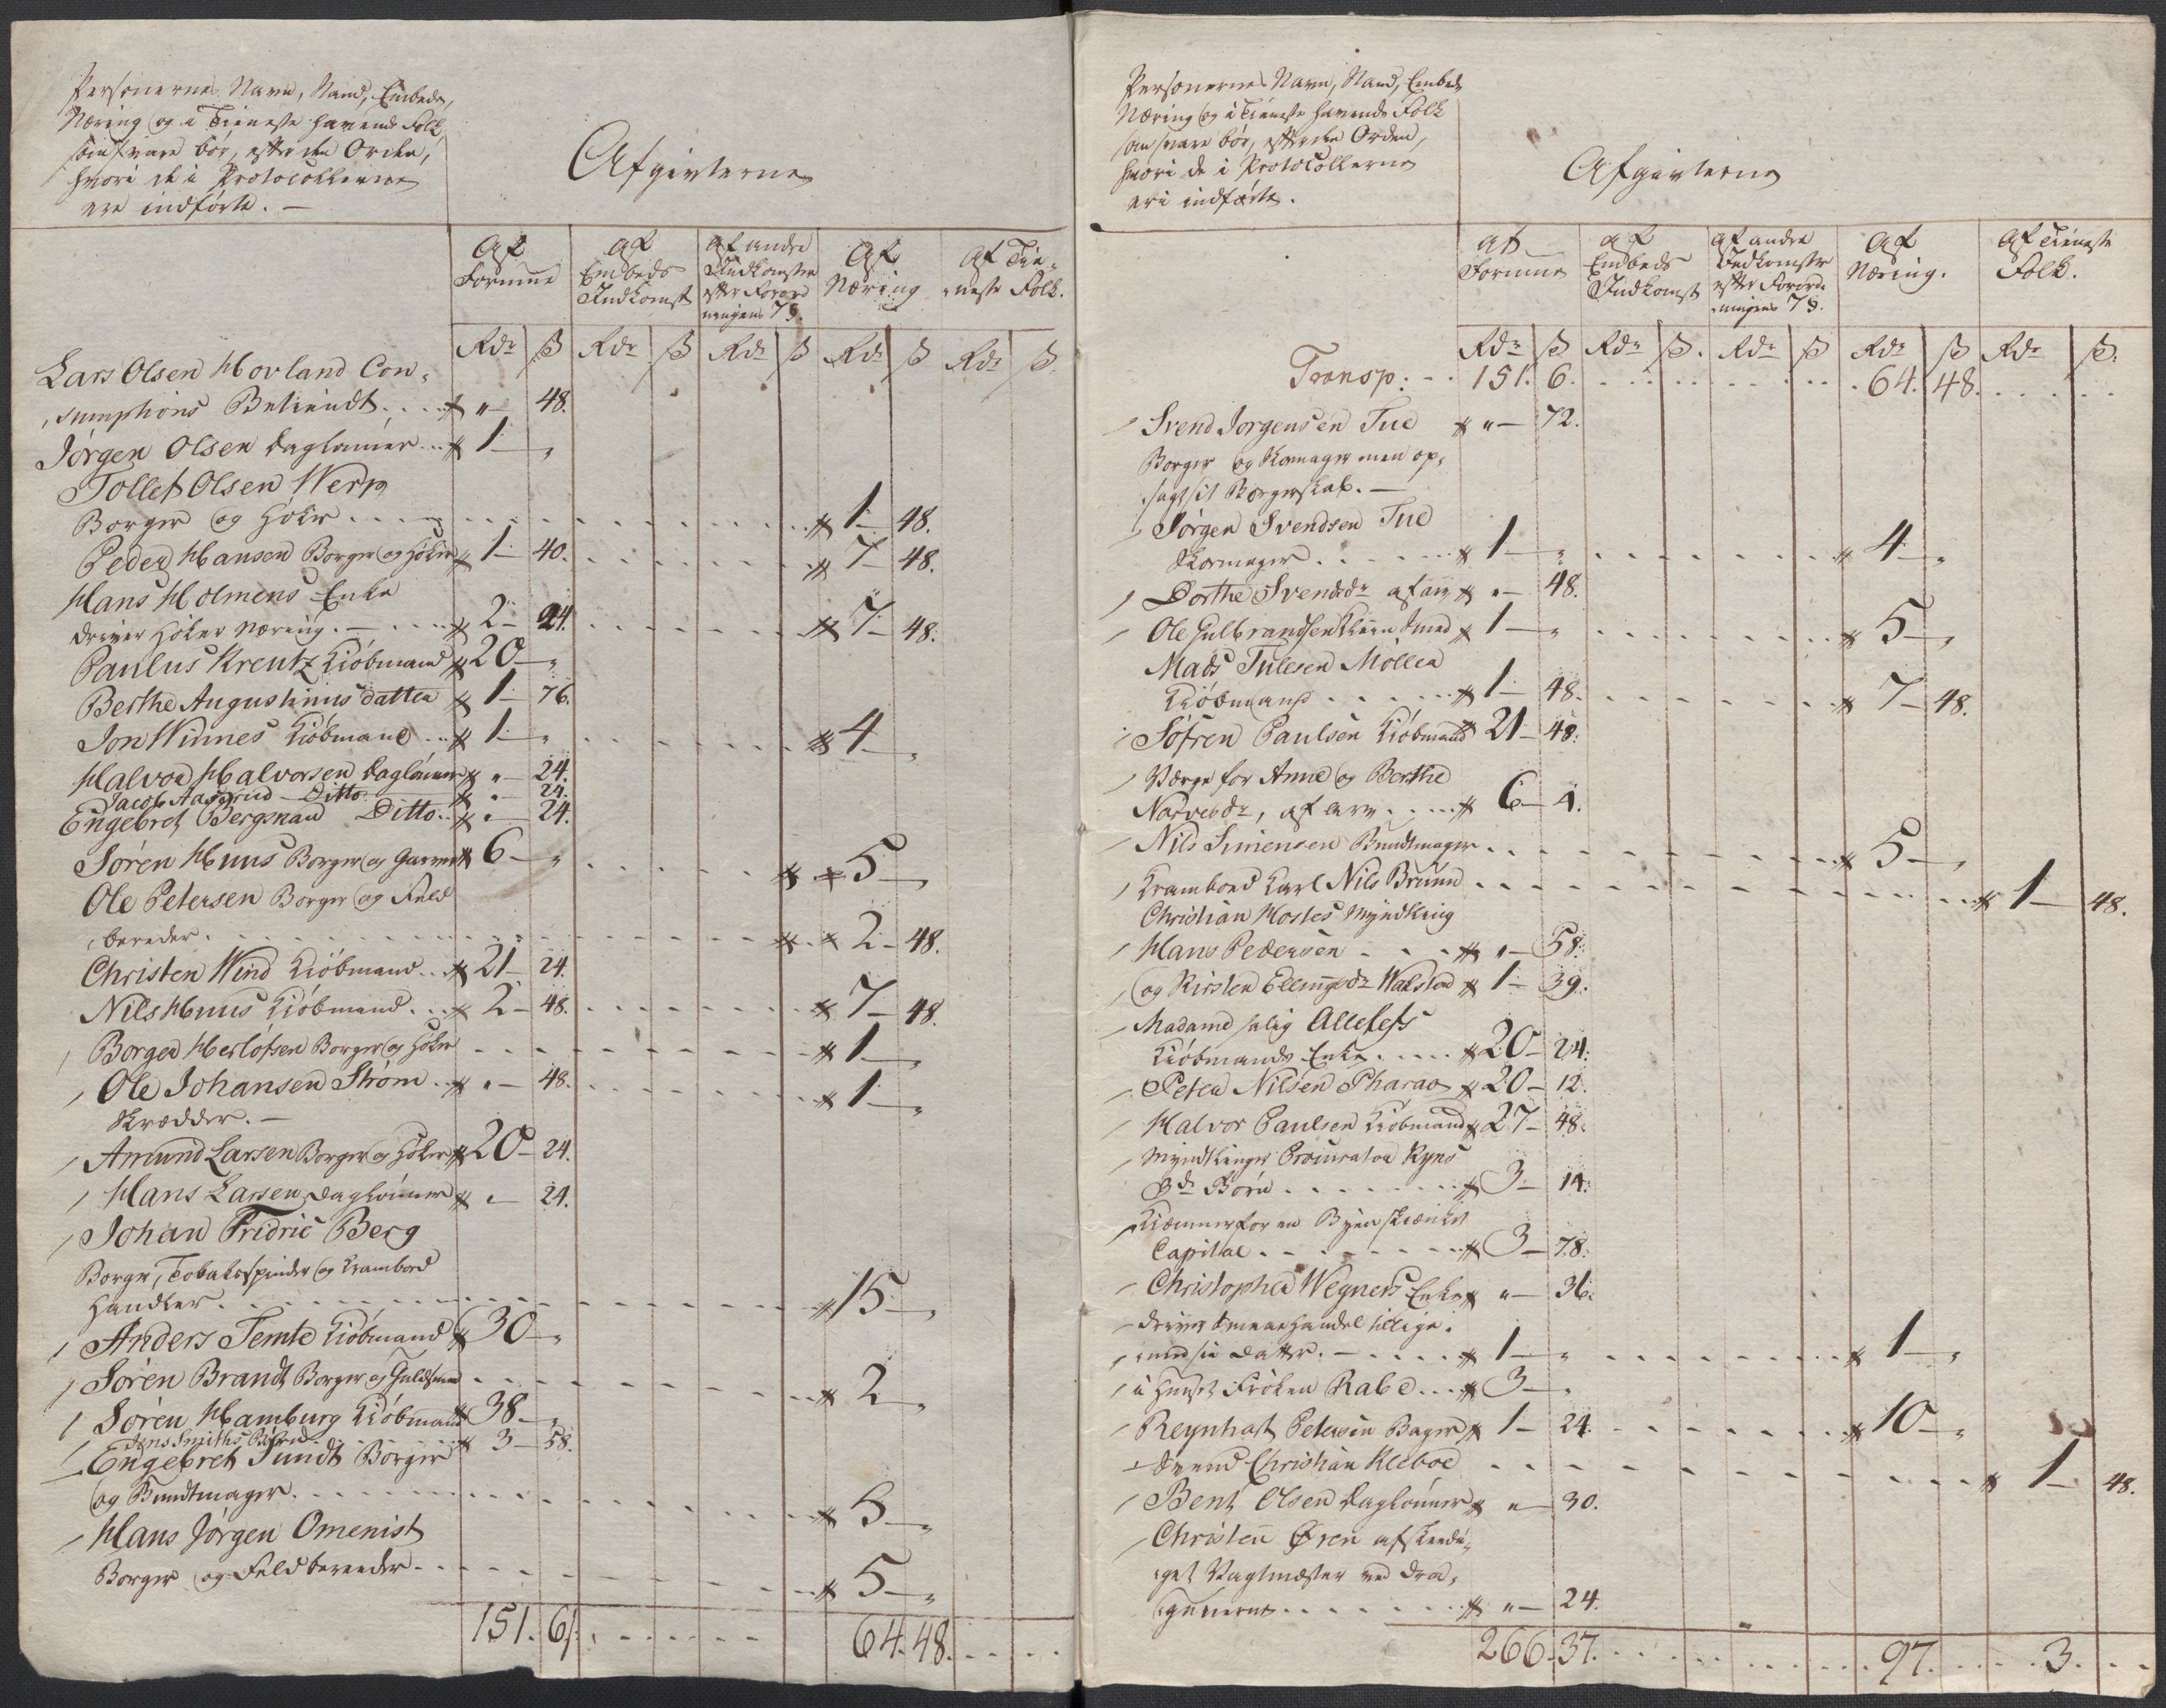 Personernes Navn, Stand, Embede,
Næring og i Tieneste havende Folk
som svare bør, efter den Orden,
hvori de i Protocollerne
ere indførte. —
Afgivterne
Af Formue
af Embeds Indkomst
af andre Indkomster efter Forordningens 7 §.
Af Næring
Af Tieneste Folk.
Rdr ß Rdr ß Rdr ß Rdr ß Rdr ß
Lars Olsen Hovland Con-
sumptions Betiendt .... " — 48.
Jørgen Olsen Daglønner ... 1 — "
Tollef Olsen Werp
Borger og Høker ..... 1 — 48.
Peder Hansen Borger og Høker 1 — 40. ..... 7 — 48.
Hans Holmens Enke
driver Høker Næring. — .... 2 — 24. ..... 7 — 48.
Paulus Kreutz Kiøbmand 20 — "
Berthe Augustinus datter 1 — 76.
Jon Winnes Kiøbmand ... 1 — " ..... 4 — "
Halvor Halvorsen Daglønner " — 24.
Jacob Aasgrud — Ditto " — 24.
Engebret Bergman Ditto .. " — 24.
Søren Huus Borger og Garver 6 — " ..... 5 — "
Ole Petersen Borger og Feld
bereder. ..... 2 — 48.
Christen Wind Kiøbmand .. 21 — 24.
Nils Huus Kiøbmand ... 2 — 48. ..... 7 — 48.
Borger Herlofsen Borger og Høker ..... 1 — "
Ole Johansen Strøm .. " — 48. ..... 1 — "
Skrædder. —
Amund Larsen Borger og Høker 20 — 24.
Hans Larsen Daglønner " — 24.
Johan Fridric Berg
Borger, Tobakspinder og Krambod
Handler. ..... 15 — "
Anders Temte Kiøbmand 30 — "
Søren Brandt Borger og Guldsmed ..... 2 — "
Søren Hamburg Kiøbmand 38 — "
Jens Smiths Børn ..... 3 — 58.
Engebret Sundt Borger
og Bundtmager. ..... 5 — "
Hans Jørgen Omenist
Borger og Feldbereeder ..... 5 — "
151. 6 ..... 64. 48. ....
Personernes Navn, Stand, Embede
Næring og i Tieneste havende Folk
som svare bør, efter den Orden,
hvori de i Protocollerne
ere indførte.
Afgivterne
af Formue
af Embeds Indkomst
af andre Indkomster efter Forordningens 7 §.
Af Næring.
Af Tieneste Folk.
Rdr ß Rdr ß. Rdr ß Rdr ß Rdr ß.
Transp: .. 151. 6. ..... 64. 48. ....
Svend Jorgensen Tue " — 72.
Borger og Skomager men op-
sagt sit Borgerskab. —
Jørgen Svendsen Tue
Skomager ...... 1 — " ..... 4 — "
Dorthe Svendsdr af arv " — 48.
Ole Gulbrandsen Klein Smed 1 — " ..... 5 — "
Mads Tulesen Møller
Kiøbmand ..... 1 — 48. ..... 7 — 48.
Søfren Paulsen Kiøbmand 21 — 48.
Værge for Anne og Berthe
Narvesdr, af arv .... 6 — 4.
Nils Simensen Bundtmager ..... 5 — "
Krambod Karl Nils Bruun ..... 1 — 48.
Christian Hostes Myndtling
Hans Pedersen ... " — 58.
og Kirsten Ellingsdr Walstad 1 — 39.
Madame salig Allefefs
Kiøbmands Enke ..... 20 — 24.
Peter Nilsen Pharao 20 — 12.
Halvor Paulsen Kiøbmand 27 — 48.
Myndtlinger Procurator Ryns
3de Børn ....... 3 — 14.
Kiæmner for en Byen skienket
Capital ....... 3 — 78.
Christopher Wegners Enke " — 36.
driver Smaae Handel tillige
med sin Datter. — .... 1 — " ..... 1 — "
i Huuset Frøken Rabe ... 3 — "
Reynhat Petersen Bager 1 — 24. ..... 10 — "
Svend Christian Kleboe ..... 1 — 48.
Bent Olsen Daglønner " — 30.
Christen Øren afskeedi-
get Vagtmester ved Dra-
gonerne ....... " — 24.
266. 37. ..... 97. .... 3. ..